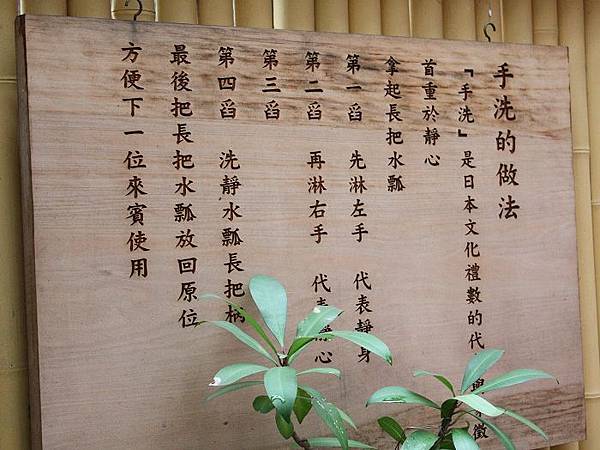 手洗的做法
『手洗』是日本文化禮數的代 與 徵
首重於靜心
拿起長把水瓢
第一舀 先淋左手 代表靜身
第二舀 再淋右手 代表靜心
第三舀
第四舀 洗靜水瓢長把柄
最後把長把水瓢放回原位
方便下一位來賓使用